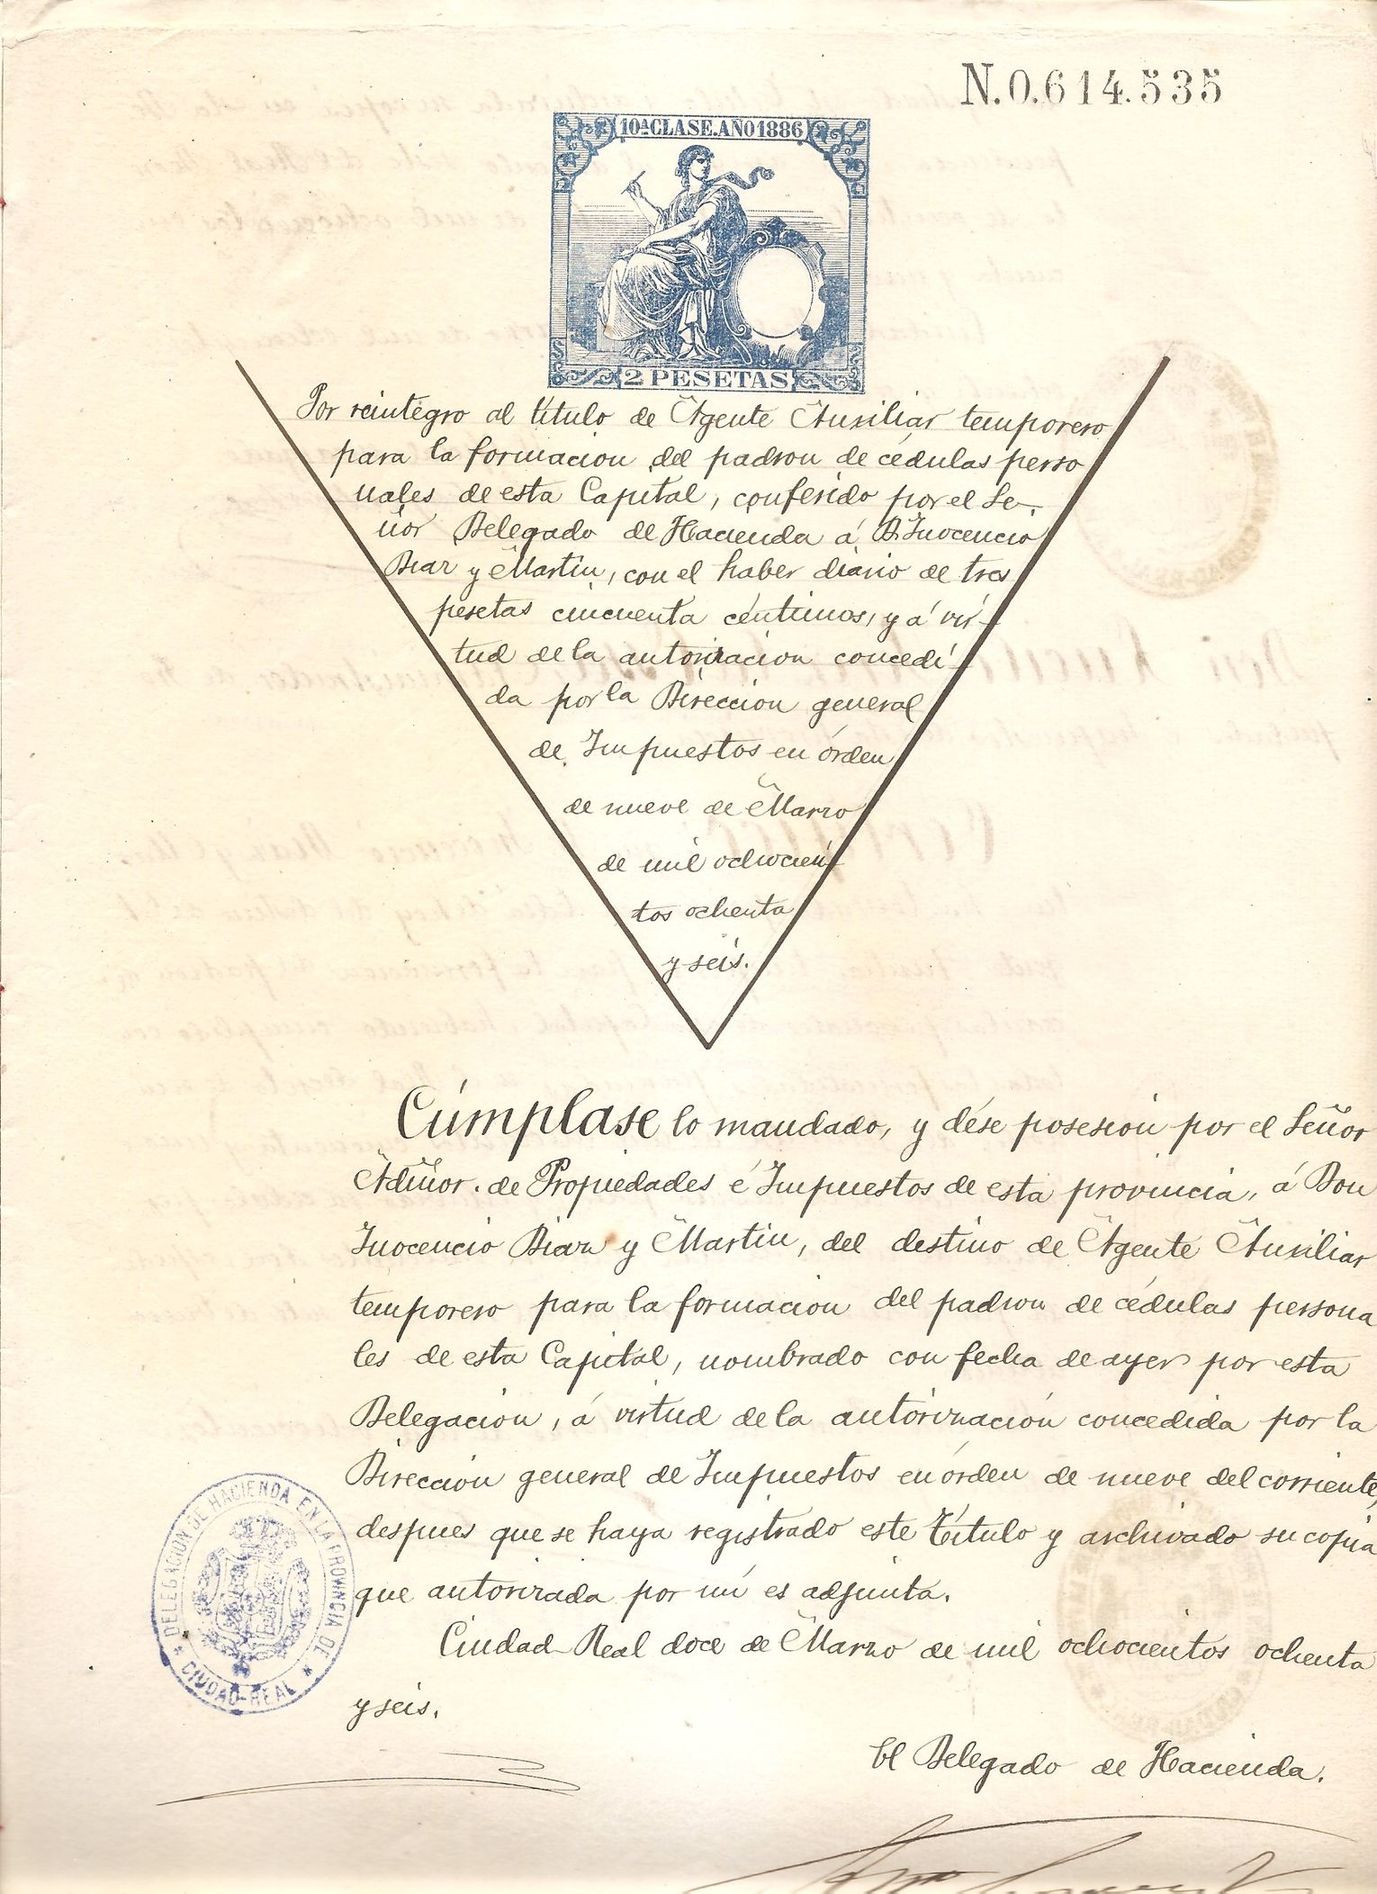 N.0.614.535
10ª CLASE. AÑO 1886
2 PESETAS
Por reintegro al título de Agente Auxiliar temporero
para la formación del padron de cédulas perso
nales de esta Capital, conferido por el Se-
ñor Delegado de Hacienda á D. Inocencio
Diaz y Martin, con el haber diario de tres
pesetas cincuenta céntimos, y á vir-
tud de la autorización concedi-
da por la Dirección general
de Impuestos en órden
de nueve de Marzo
de mil ochocien-
tos ochenta
y seis.
Cúmplase lo mandado, y dése posesión por el Señor
Admor. de Propiedades é Impuestos de esta provincia, á Don
Inocencio Diaz y Martin, del destino de Agente Auxiliar
temporero para la formación del padron de cédulas persona
les de esta Capital, nombrado con fecha de ayer por esta
Delegación, á virtud de la autorización concedida por la
Dirección general de Impuestos en órden de nueve del corriente,
despues que se haya registrado este Título y archivado su copia
que autorizada por mí es adjunta.
Ciudad-Real doce de Marzo de mil ochocientos ochenta
y seis.
El Delegado de Hacienda.
DELEGACION DE HACIENDA EN LA PROVINCIA DE
CIUDAD-REAL